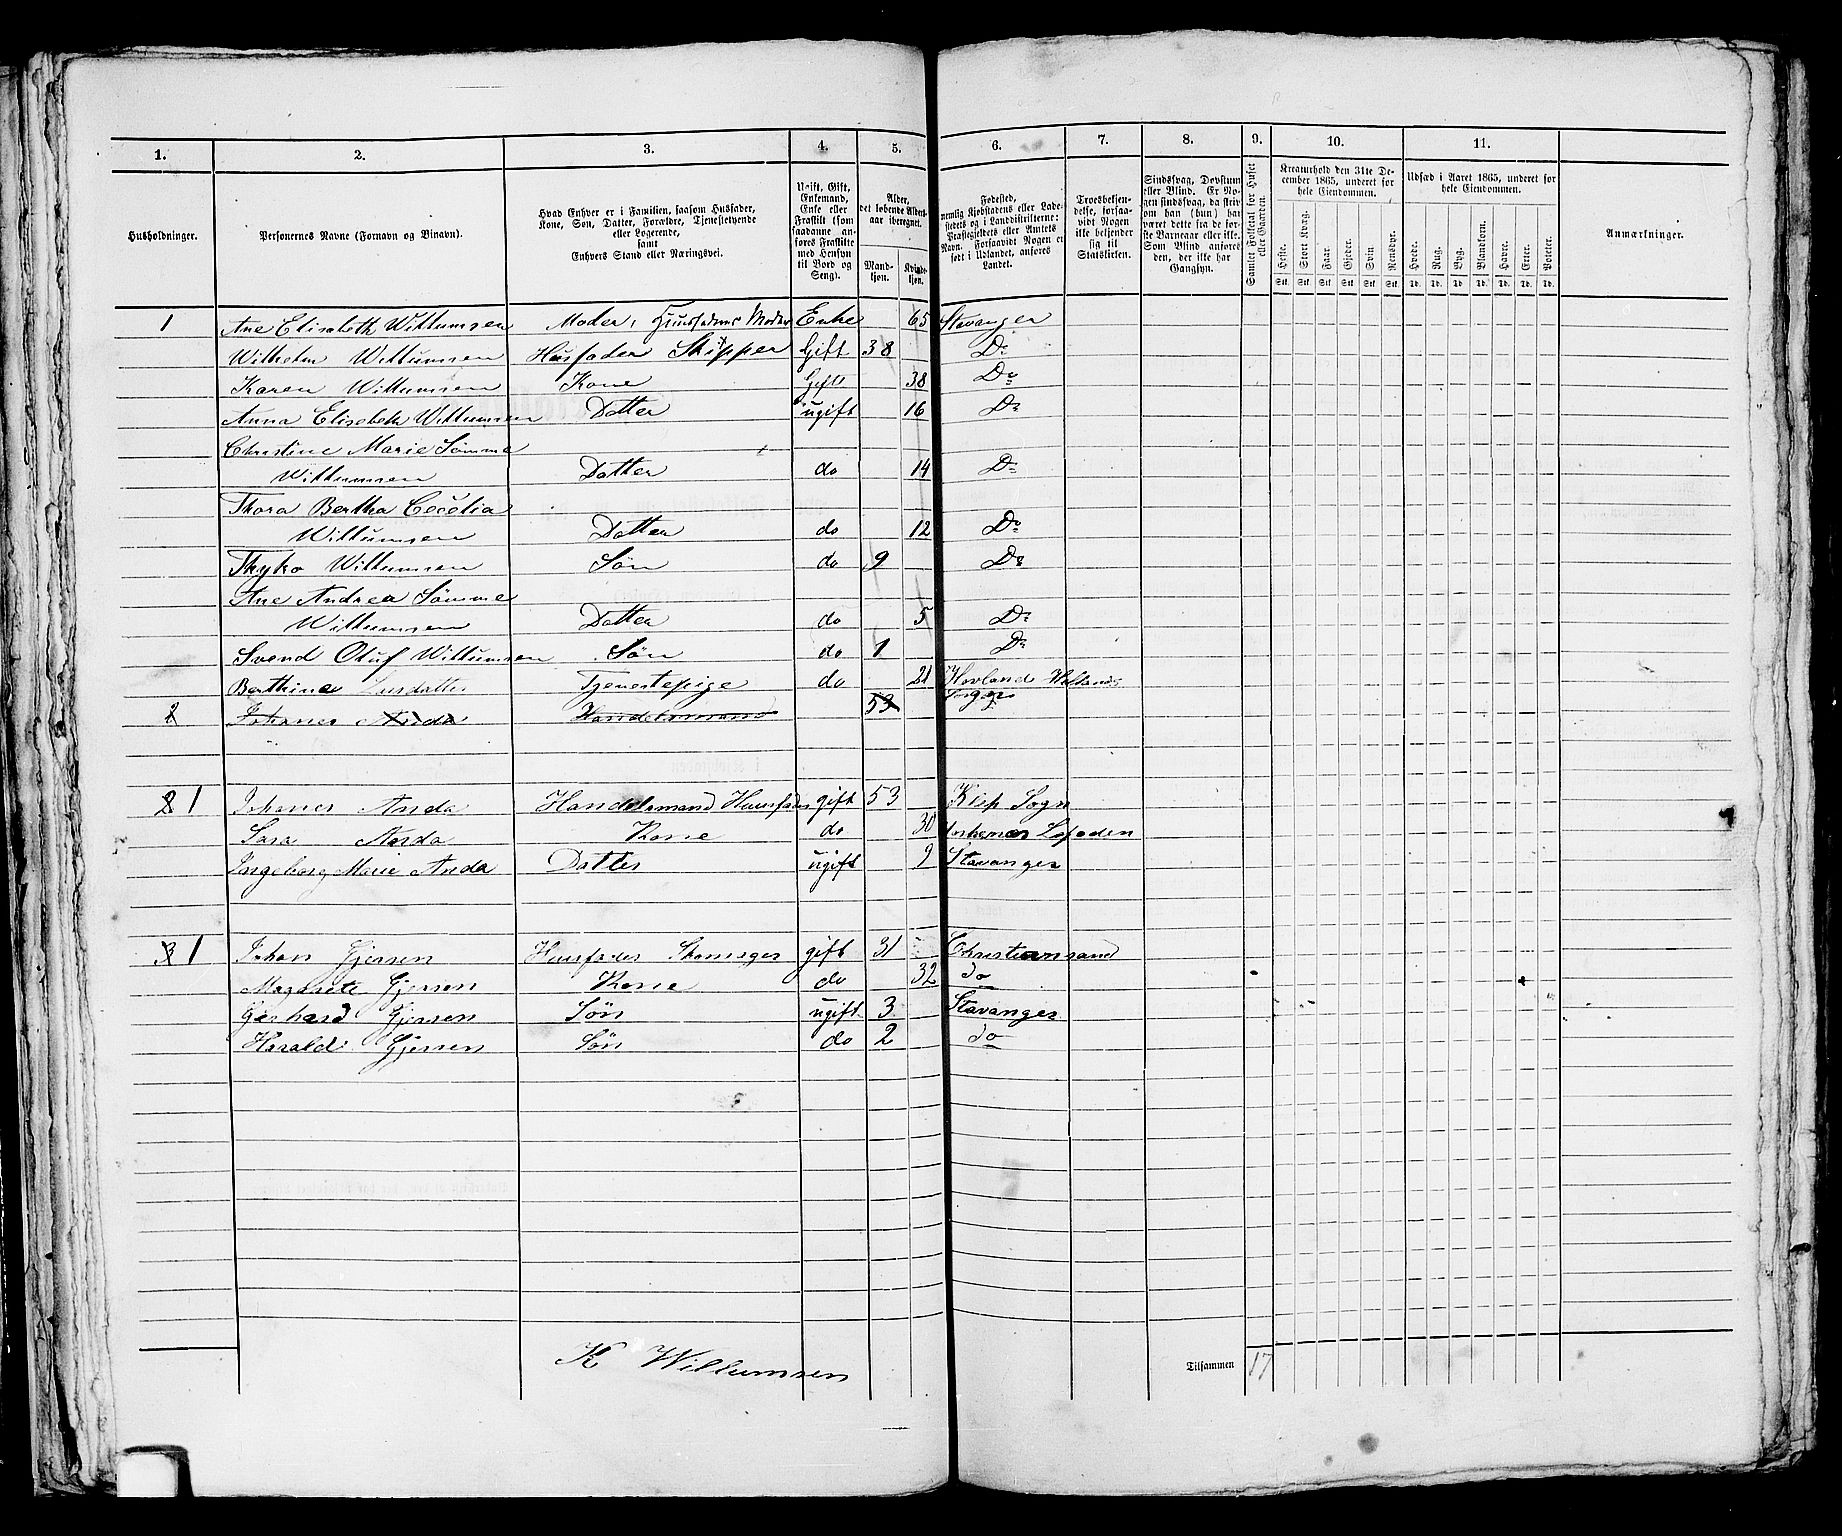 1. 2. 3. 4. 5. 6. 7. 8. 9. 10. 11.
Husholdninger.
Personernes Navne (Fornavn og Binavn).
Hvad Enhver er i Familien, saasom Husfader,
Kone, Søn, Datter, Forældre, Tjenestetyende
eller Logerende,
samt
Enhvers Stand eller Næringsvei.
Ugift, Gift,
Enkemand,
Enke eller
Fraskilt (som
saadanne an-
føres Fraskilte
med Hensyn
til Bord og
Seng).
Alder,
det løbende Alders-
aar iberegnet.
Mand-
kjøn.
Kvinde-
kjøn.
Fødested,
nemlig Kjøbstadens eller Lade-
stedets og i Landdistrikterne:
Præstegjeldets eller Amtets
Navn. Forsaavidt Nogen er
født i Udlandet, anføres
Landet.
Troesbekjen-
delse, forsaa-
vidt Nogen
ikke bekjender
sig til
Statskirken.
Sindssvag, Døvstum
eller Blind. Er No-
gen sindssvag, da skriv
om han (hun) har
været dette fra de før-
ste Barneaar eller ikke.
Som Blind anføres
den, der ikke har
Gangsyn.
Samlet Folketal for Huset
eller Gaarden.
Kreaturhold den 31te De-
cember 1865, underet for
hele Eiendommen.
Heste. Stort Kvæg. Faar. Gjeder. Svin. Rensdyr.
Stk. Stk. Stk. Stk. Stk. Stk.
Udsæd i Aaret 1865, underet for
hele Eiendommen.
Hvede. Rug. Byg. Blandkorn. Havre. Erter. Poteter.
Td. Td. Td. Td. Td. Td. Td.
Anmærkninger.
1 Ane Elisabeth Willumsen Moder, Huusfaders Moder Enke 65 Stavanger
Wilhelm Willumsen Husfader Skipper Gift 38 Do
Karen Willumsen Kone Gift 38 Do
Anna Elisabeth Willumsen Datter ugift 16 Do
Christine Marie Sømme
Willumsen Datter do 14 Do
Thora Bertha Cecelia
Willumsen Datter do 12 Do
Thyko Willumsen Søn do 9 Do
Ane Andrea Sømme
Willumsen Datter do 5 Do
Svend Oluf Willumsen Søn do 1 Do
Berthine Tjenestepige do 21 Hovland
2 Johanes Anda Handelsmand 53
2 1 Johanes Anda Handelsmand Huusfader gift 53 Klep Sogn
Sara Anda Kone do 30 Lofoden
Ingeborg Marie Anda Datter ugift 9 Stavanger
3 1 Johan Gjersen Huusfader Skomager gift 31 Christiansand
Margrete Gjersen Kone do 32 do
Gerhard Gjersen Søn ugift 3 Stavanger
Harald Gjersen Søn do 2 do
K Willumsen
Tilsammen 17